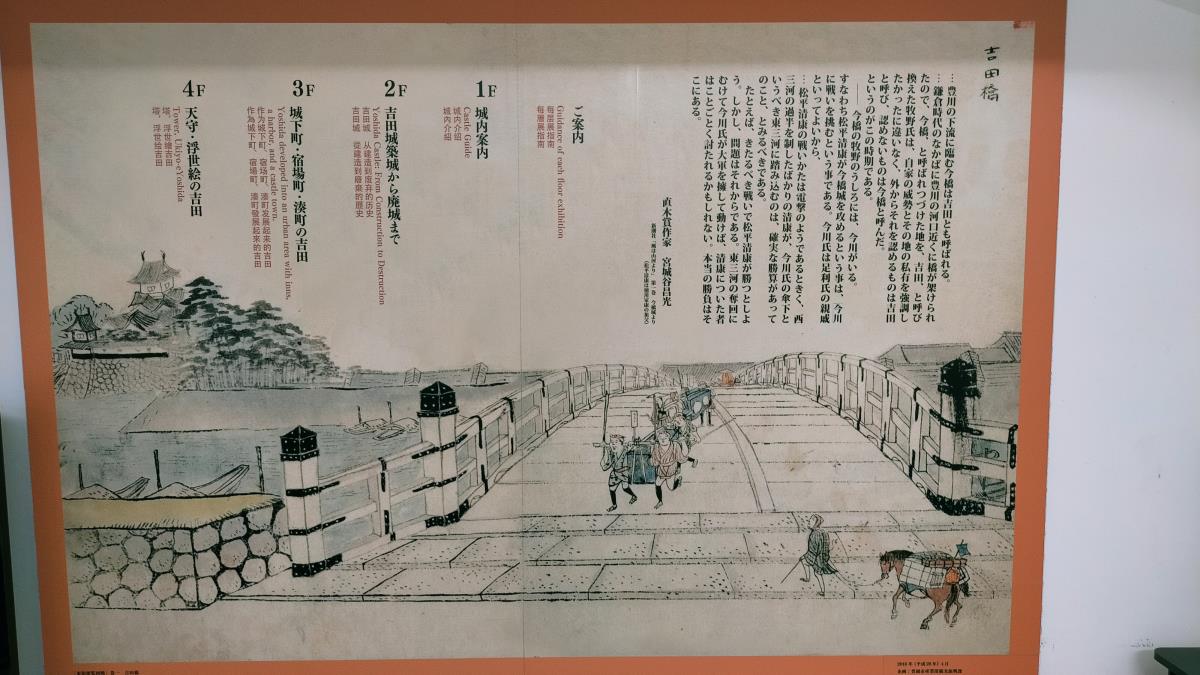 吉田橋
…豊川の下流に臨む今橋は吉田とも呼ばれる。
…鎌倉時代のなかばに豊川の河口近くに橋が架けられ
たので、今橋、と呼ばれつづけた地を、吉田、と呼び
換えた牧野氏は、自家の威勢とその地の私有を強調し
たかったに違いなく、外からそれを認めるものは吉田
と呼び、認めないものは今橋と呼んだ。
というのがこの時期である。
――今橋の牧野のうしろには、今川がいる。
すなわち松平清康が今橋城を攻めるという事は、今川
に戦いを挑むという事である。今川氏は足利氏の親戚
といってよいから、
…松平清康の戦いかたは電撃のようであるときく、西
三河の過半を制したばかりの清康が、今川氏の傘下と
いうべき東三河に踏み込むのは、確実な勝算があって
のこと、とみるべきである。
たとえば、きたるべき戦いで松平清康が勝つとしよ
う。しかし、問題はそれからである。東三河の奪回に
むけて今川氏が大軍を擁して動けば、清康についた者
はことごとく討たれるかもしれない。本当の勝負はそ
こにある。
直木賞作家 宮城谷昌光
ご案内
Guidance of each floor exhibition
每层展指南
每層展指南
1F 城内案内
Castle Guide
城内介绍
城内介紹
2F 吉田城築城から廃城まで
Yoshida Castle: From Construction to Destruction
吉田城 从建造到废弃的历史
吉田城 從建造到廢棄的歷史
3F 城下町・宿場町・湊町の吉田
Yoshida developed into an urban area with inns,
a harbor, and a castle town.
作为城下町、宿场町、湊町发展起来的吉田
作為城下町、宿場町、湊町發展起來的吉田
4F 天守・浮世絵の吉田
Tower, Ukiyo-e Yoshida
塔、浮世绘吉田
塔、浮世繪吉田